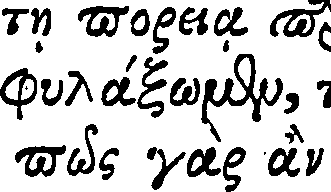 τῇ πορείᾳ
φυλάξωμεν,
πῶς γὰρ ἂν